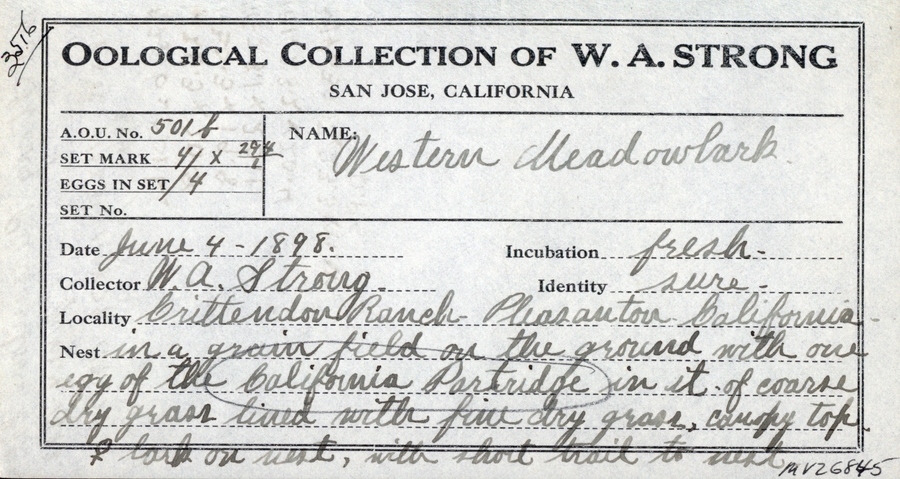 3516
OOLOGICAL COLLECTION OF W. A. STRONG
SAN JOSE, CALIFORNIA
A.O.U. No. 501b
SET MARK 41 x 294/1
EGGS IN SET 1/4
SET No.
NAME: Western Meadowlark.
Date June 4 - 1898. Incubation fresh -
Collector W. A. Strong. Identity sure -
Locality Crittendon Ranch - Pleasanton California
Nest in a grain field on the ground with one
egg of the California Partridge in it. of coarse
dry grass lined with fine dry grass, canopy top.
♀ lark on nest, with short trail to nest
MVZ6845